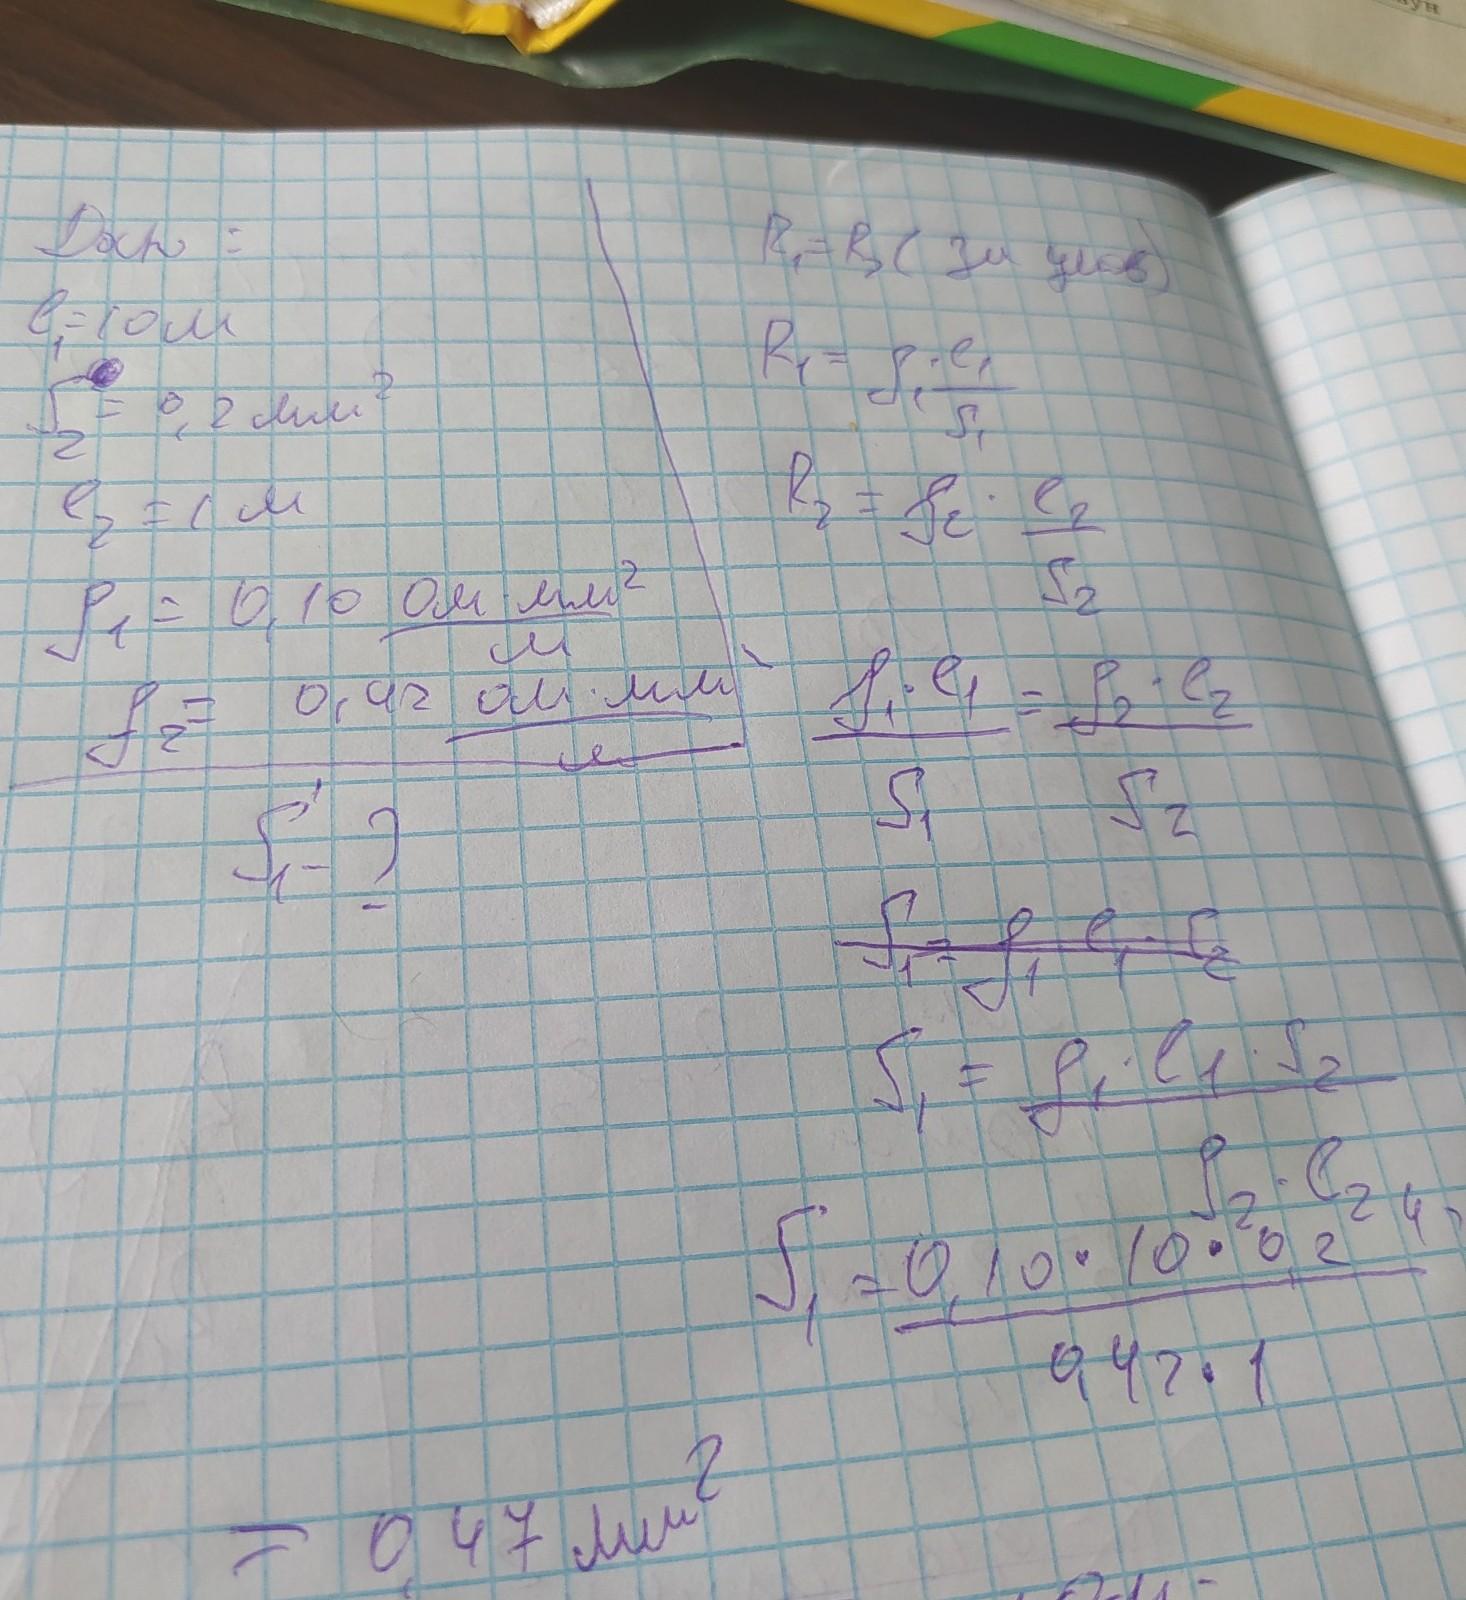 Дано:
l₁=10м
S₂=0,2мм²
l₂=1м
ρ₁=0,10 Ом·мм²
м
ρ₂= 0,42 Ом·мм
м
S₁-?
R₁=R₂(За умов)
R₁= ρ₁·l₁
S₁
R₂=ρ₂·l₂
S₂
ρ₁·l₁=ρ₂·l₂
S₁ S₂
S₁=ρ₁ l₁·S₂
S₁=ρ₁·l₁·S₂
ρ₂·l₂
S₁=0,10·10·0,2
0,42·1
=0,47мм²